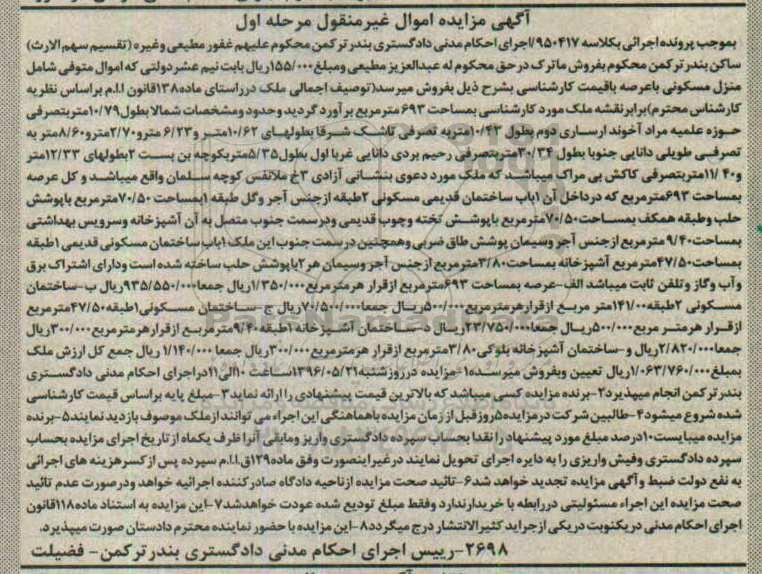 آگهی مزایده اموال غیرمنقول مرحله اول
بموجب پرونده اجرائی بکلاسه ۹۵۰۴۱۷/اجرای احکام مدنی دادگستری بندر ترکمن محکوم علیهم غفور مطیعی وغیره (تقسیم سهم الارث)
ساکن بندر ترکمن محکوم بفروش ماترک در حق محکوم له عبدالعزیز مطیعی ومبلغ ۱۵۵/۰۰۰ریال بابت نیم عشر دولتی که اموال متوفی شامل
منزل مسکونی باعرصه باقیمت کارشناسی بشرح ذیل بفروش میرسد(توصیف اجمالی ملک درراستای ماده۱۳۸قانون ا.ا.م براساس نظریه
کارشناس محترم)برابرنقشه ملک مورد کارشناسی بمساحت ۶۹۳ مترمربع بر آورد گردید وحدود ومشخصات شمالا بطول ۱۰/۷۹متربتصرفی
حوزه علمیه مراد آخوند ارسـاری دوم بطول ۱۰/۴۳متربه تصرفی تاشـک شـرقا بطولهـای ۱۰/۶۲متـر و ۶/۲۳ مترو ۲/۷۰مترو۸/۶۰متر به
تصرفـی طویلی دانایی جنوبا بطول ۳۰/۳۴متربتصرفی رحیم بردی دانایی غربا اول بطول ۵/۳۵متربکوچه بن بسـت ۲بطولهای ۱۲/۳۳متر
و۱۱/۴۰متربتصرفی کاکش بی مراک میباشـد که ملک مورد دعوی بنشـانی آزادی ۳خ ملانفس کوچه سـلمان واقع میباشـد و کل عرصه
بمساحت ۶۹۳مترمربع که درداخل آن ۱باب ساختمان قدیمی مسکونی ۲طبقه ازجنس آجر وگل طبقه ۱بمساحت ۷۰/۵۰مترمربع باپوشش
حلب وطبقه همکف بمسـاحت ۷۰/۵۰مترمربع باپوشـش تخته وچوب قدیمی ودرسمت جنوب متصل به آن آشپزخانه وسرویس بهداشتی
بمساحت ۹/۴۰ مترمربع ازجنس آجر وسیمان پوشش طاق ضربی وهمچنین درسمت جنوب این ملک ۱باب ساختمان مسکونی قدیمی ۱طبقه
بمساحت ۴۷/۵۰مترمربع آشپزخانه بمساحت ۳/۸۰مترمربع ازجنس آجر وسیمان هر ۲باپوشش حلب ساخته شده است ودارای اشتراک برق
وآب وگاز وتلفن ثابت میباشد الف-عرصه بمساحت ۶۹۳مترمربع ازقرار هرمترمربع ۱/۳۵۰/۰۰۰ریال جمعا۹۳۵/۵۵۰/۰۰۰ریال ب-ساختمان
مسـکونی ۲طبقه ۱۴۱/۰۰متر مربـع ازقرارهرمترمربع۵۰۰/۰۰۰ریـال جمعـا ۷۰/۵۰۰/۰۰۰ریال ج – سـاختمان مسـکونی۱طبقه ۴۷/۵۰مترمربع
ازقـرار هرمتـر مربع۵۰۰/۰۰۰ریـال جمعـا۲۳/۷۵۰/۰۰۰ریال د- سـاختمان آشـپزخانه ۱طبقه ۹/۴۰مترمربـع ازقرارهرمترمربع۳۰۰/۰۰۰ریال
جمعا۲/۸۲۰/۰۰۰ریال و-ساختمان آشپزخانه بلوکی ۳/۸۰مترمربع ازقرار هرمترمربع۳۰۰/۰۰۰ریال جمعا ۱/۱۴۰/۰۰۰ ریال جمع کل ارزش ملک
بمبلغ ۱/۰۶۳/۷۶۰/۰۰۰ریال تعیین وبفروش میرسـد۱-مزایده درروزشنبه ۱۳۹۶/۰۵/۲۱ساعت ۱۰الی ۱۱دراجرای احکام مدنی دادگستری
بندر ترکمن انجام میپذیرد۲-برنده مزایده کسی میباشد که بالاترین قیمت پیشنهادی را ارائه نماید۳-مبلغ پایه براساس قیمت کارشناسی
شده شروع میشود۴-طالبین شرکت درمزایده ۵روزقبل اززمان مزایده باهماهنگی این اجراء می توانند ازملک موصوف بازدید نمایند۵-برنده
مزایده میبایست ۱۰درصد مبلغ مورد پیشنهاد را نقدا بحساب سپرده دادگستری واریز ومابقی آنرا ظرف یکماه از تاریخ اجرای مزایده بحساب
سپرده دادگستری وفیش واریزی را به دایره اجرای تحویل نمایند درغیراینصورت وفق ماده ۱۲۹ق.ا.ا.م سپرده پس از کسرهزینه های اجرائی
به نفع دولت ضبط وآگهی مزایده تجدید خواهد شد۶-تائید صحت مزایده ازناحیه دادگاه صادرکننده اجرائیه خواهد ودرصورت عدم تائید
صحت مزایده این اجراء مسئولیتی دررابطه با خریدارندارد وفقط مبلغ تودیع شده عودت خواهدشد۷-این مزایده به استناد ماده۱۱۸قانون
اجرای احکام مدنی دریکنوبت دریکی ازجراید کثیرالانتشار درج میگردد۸-این مزایده با حضور نماینده محترم دادستان صورت میپذیرد.
۲۶۹۸-رییس اجرای احکام مدنی دادگستری بندرترکمن- فضیلت